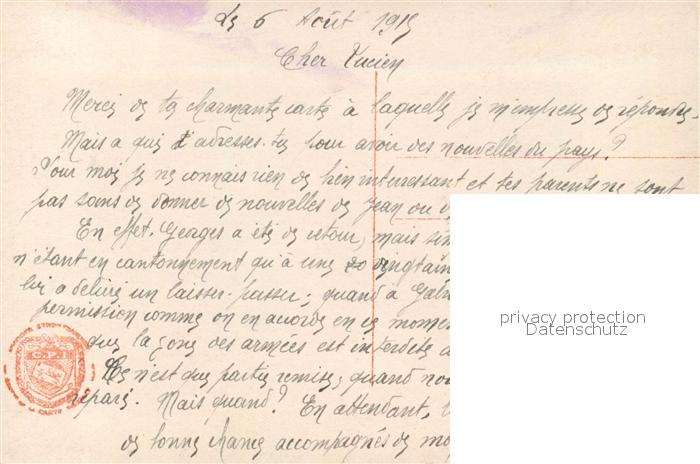 Le 6 Août 1915
Cher Lucien
Merci de ta charmante carte à laquelle je m'empresse de répondre.
Mais a qui t'adresses-tu pour avoir des nouvelles du pays?
Pour moi je ne connais rien de bien interressant et tes parents ne sont
pas sans de donner de nouvelles de Jean ou d
En effet. Georges a été de retour, mais
n'étant en cantonnement qu'à une 20 vingtain
lui a délivré un laisser-passer; quand à
permission comme on en accorde en ce momen
que la zone des armées est interdite a
Ce n'est que partie remise, quand
réparé. Mais quand? En attendant,
de bonne chance accompagnés de
privacy protection
Datenschutz